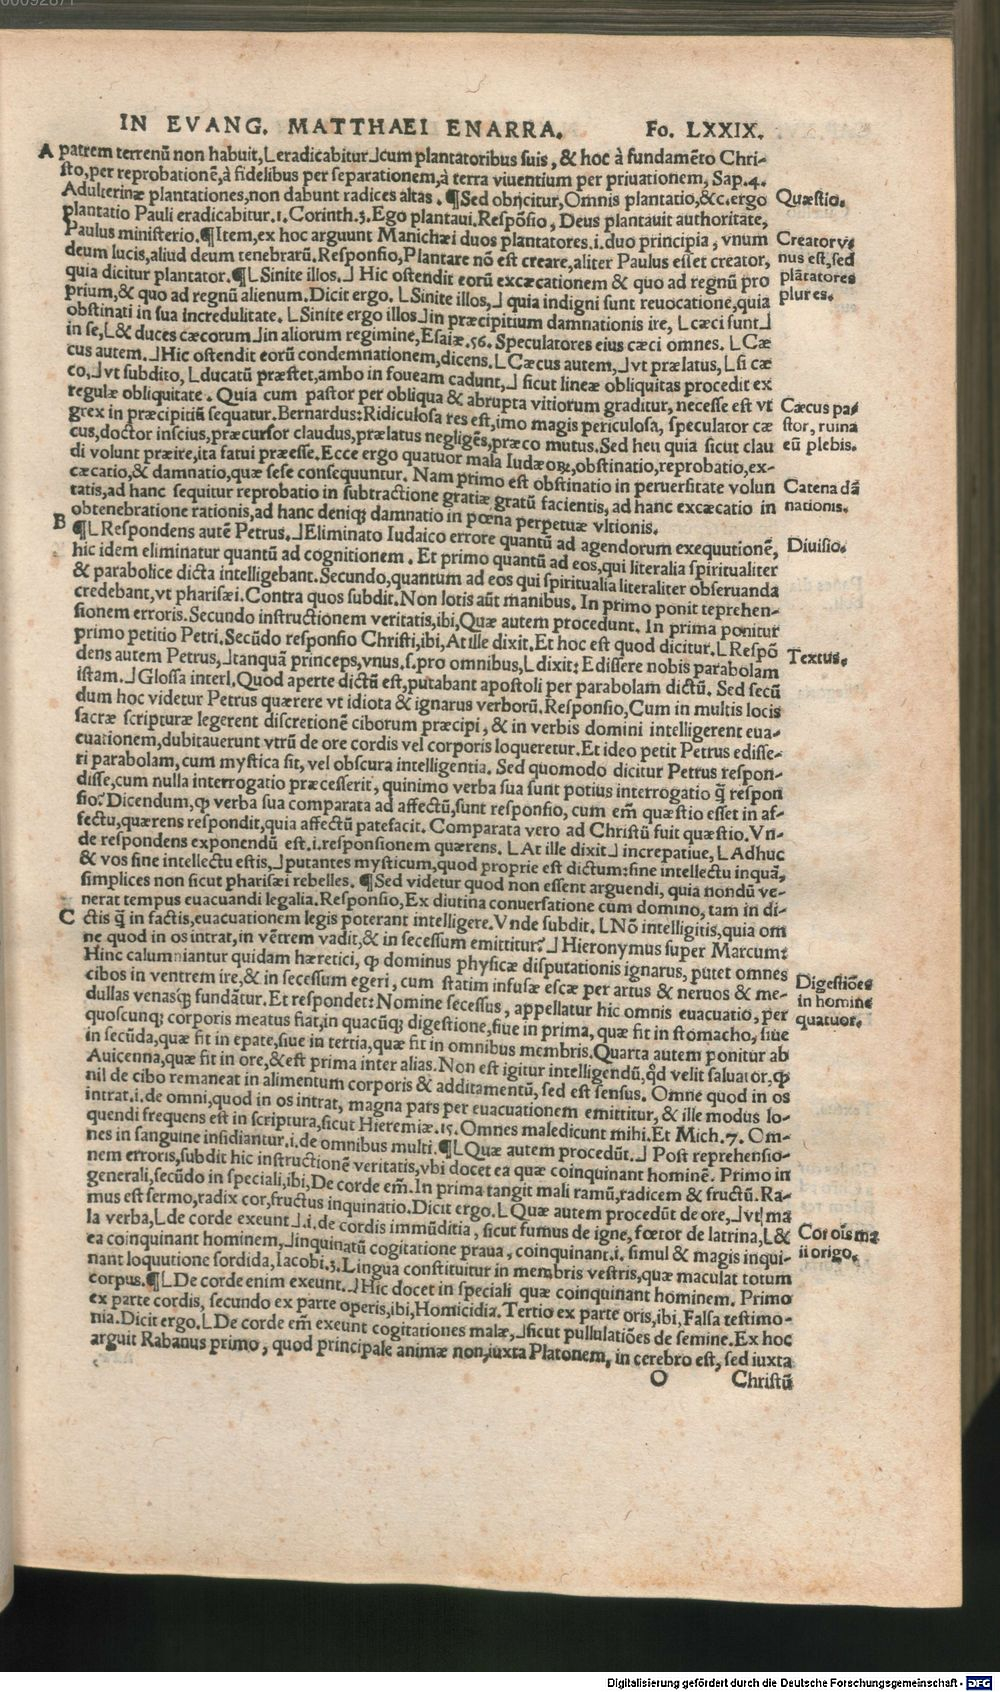 IN EVANG. MATTHAEI ENARRA. Fo. LXXIX.
A patrem terrenū non habuit, L eradicabitur ⅃ cum plantatoribus suis, & hoc à fundamēto Chri-
sto, per reprobationē, à fidelibus per separationem, à terra viuentium per priuationem, Sap.4.
Adulterinæ plantationes, non dabunt radices altas. ¶ Sed obijcitur, Omnis plantatio, &c. ergo
plantatio Pauli eradicabitur. 1. Corinth.3. Ego plantaui. Respōsio, Deus plantauit authoritate,
Paulus ministerio. ¶ Item, ex hoc arguunt Manichæi duos plantatores .i. duo principia, vnum
deum lucis, aliud deum tenebrarū. Responsio, Plantare nō est creare, aliter Paulus esset creator,
quia dicitur plantator. ¶ L Sinite illos. ⅃ Hic ostendit eorū excæcationem & quo ad regnū pro
prium, & quo ad regnū alienum. Dicit ergo. L Sinite illos, ⅃ quia indigni sunt reuocatione, quia
obstinati in sua incredulitate. L Sinite ergo illos ⅃ in præcipitium damnationis ire, L cæci sunt ⅃
in se, L & duces cæcorum ⅃ in aliorum regimine, Esaiæ.56. Speculatores eius cæci omnes. L Cæ
cus autem. ⅃ Hic ostendit eorū condemnationem, dicens. L Cæcus autem, ⅃ vt prælatus, L si cæ
co, ⅃ vt subdito, L ducatū præstet, ambo in foueam cadunt, ⅃ sicut lineæ obliquitas procedit ex
regulæ obliquitate. Quia cum pastor per obliqua & abrupta vitiorum graditur, necesse est vt
grex in præcipitiū sequatur. Bernardus: Ridiculosa res est, imo magis periculosa, speculator cæ
cus, doctor inscius, præcursor claudus, prælatus negligēs, præco mutus. Sed heu quia sicut clau
di volunt præire, ita fatui præesse. Ecce ergo quatuor mala Iudæoꝝ, obstinatio, reprobatio, ex-
cæcatio, & damnatio, quæ sese consequuntur. Nam primo est obstinatio in peruersitate volun
tatis, ad hanc sequitur reprobatio in subtractione gratiæ gratū facientis, ad hanc excæcatio in
obtenebratione rationis, ad hanc deniqꝫ damnatio in pœna perpetuæ vltionis.
B ¶ L Respondens autē Petrus. ⅃ Eliminato Iudaico errore quantū ad agendorum exequutionē,
hic idem eliminatur quantū ad cognitionem. Et primo quantū ad eos, qui literalia spiritualiter
& parabolice dicta intelligebant. Secundo, quantum ad eos qui spiritualia literaliter obseruanda
credebant, vt pharisæi. Contra quos subdit. Non lotis aūt manibus. In primo ponit reprehen-
sionem erroris. Secundo instructionem veritatis, ibi, Quæ autem procedunt. In prima ponitur
primo petitio Petri. Secūdo responsio Christi, ibi, At ille dixit. Et hoc est quod dicitur. L Respō
dens autem Petrus, ⅃ tanquā princeps, vnus .s. pro omnibus, L dixit: Edissere nobis parabolam
istam. ⅃ Glossa interl. Quod aperte dictū est, putabant apostoli per parabolam dictū. Sed secū
dum hoc videtur Petrus quærere vt idiota & ignarus verborū. Responsio, Cum in multis locis
sacræ scripturæ legerent discretionē ciborum præcipi, & in verbis domini intelligerent eua-
cuationem, dubitauerunt vtrū de ore cordis vel corporis loqueretur. Et ideo petit Petrus edisse-
ri parabolam, cum mystica sit, vel obscura intelligentia. Sed quomodo dicitur Petrus respon-
disse, cum nulla interrogatio præcesserit, quinimo verba sua sunt potius interrogatio q̃ respon
sio? Dicendum, ꝙ verba sua comparata ad affectū, sunt responsio, cum em̃ quæstio esset in af-
fectu, quærens respondit, quia affectū patefacit. Comparata vero ad Christū fuit quæstio. Vn-
de respondens exponendū est .i. responsionem quærens. L At ille dixit ⅃ increpatiue, L Adhuc
& vos sine intellectu estis, ⅃ putantes mysticum, quod proprie est dictum: sine intellectu inquā,
simplices non sicut pharisæi rebelles. ¶ Sed videtur quod non essent arguendi, quia nondū ve-
nerat tempus euacuandi legalia. Responsio, Ex diutina conuersatione cum domino, tam in di-
C ctis q̃ in factis, euacuationem legis poterant intelligere. Vnde subdit. L Nō intelligitis, quia om
ne quod in os intrat, in vētrem vadit, & in secessum emittitur? ⅃ Hieronymus super Marcum:
Hinc calumniantur quidam hæretici, ꝙ dominus physicæ disputationis ignarus, putet omnes
cibos in ventrem ire, & in secessum egeri, cum statim infusæ escæ per artus & neruos & me-
dullas venasqꝫ fundātur. Et respondet: Nomine secessus, appellatur hic omnis euacuatio, per
quoscunqꝫ corporis meatus fiat, in quacūqꝫ digestione, siue in prima, quæ fit in stomacho, siue
in secūda, quæ fit in epate, siue in tertia, quæ fit in omnibus membris. Quarta autem ponitur ab
Auicenna, quæ fit in ore, & est prima inter alias. Non est igitur intelligendū, qd̊ velit saluator, ꝙ
nil de cibo remaneat in alimentum corporis & additamentū, sed est sensus. Omne quod in os
intrat .i. de omni, quod in os intrat, magna pars per euacuationem emittitur, & ille modus lo-
quendi frequens est in scriptura, sicut Hieremiæ.15. Omnes maledicunt mihi. Et Mich.7. Om-
nes in sanguine insidiantur .i. de omnibus multi. ¶ L Quæ autem procedūt. ⅃ Post reprehensio-
nem erroris, subdit hic instructionē veritatis, vbi docet ea quæ coinquinant hominē. Primo in
generali, secūdo in speciali, ibi, De corde em̃. In prima tangit mali ramū, radicem & fructū. Ra-
mus est sermo, radix cor, fructus inquinatio. Dicit ergo. L Quæ autem procedūt de ore, ⅃ vt ma
la verba, L de corde exeunt ⅃ .i. de cordis immūditia, sicut fumus de igne, fœtor de latrina, L &
ea coinquinant hominem, ⅃ inquinatū cogitatione praua, coinquinant .i. simul & magis inqui-
nant loquutione sordida, Iacobi.3. Lingua constituitur in membris vestris, quæ maculat totum
corpus. ¶ L De corde enim exeunt. ⅃ Hic docet in speciali quæ coinquinant hominem. Primo
ex parte cordis, secundo ex parte operis, ibi, Homicidia. Tertio ex parte oris, ibi, Falsa testimo-
nia. Dicit ergo. L De corde em̃ exeunt cogitationes malæ, ⅃ sicut pullulatiōes de semine. Ex hoc
arguit Rabanus primo, quod principale animæ non, iuxta Platonem, in cerebro est, sed iuxta
O Christū
Quæstio.
Creator v-
nus est, sed
plātatores
plures.
Cæcus pa-
stor, ruina
eū plebis.
Catena dā
nationis.
Diuisio.
Textus.
Digestiōes
in homine
quatuor.
Cor oīs ma
ii origo.
Digitalisierung gefördert durch die Deutsche Forschungsgemeinschaft - DFG